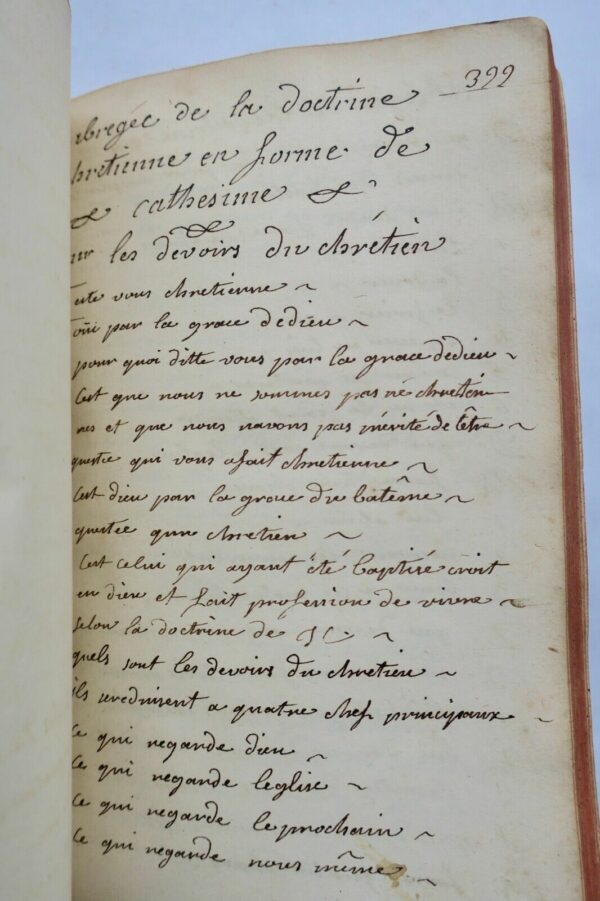 399
abregee de la doctrine
chretienne en forme de
cathesime
sur les devoirs du chrétien
ette vous chretienne ~
oüi par la grace dedieu ~
pour quoi ditte vous par la grace dedieu ~
Cest que nous ne sommes pas né chretién
nes et que nous navons pas mérité de lêtre ~
questce qui vous afait chretienne ~
Cest dieu par la grace du batême ~
questce quun chretien ~
Cest celui qui ayant été baptisé croit
en dieu et fait profession de vivre ~
selon la doctrine de JC ~
quels sont les devoirs du chretien ~
ils sereduisent a quatre chefs principaux ~
Ce qui regarde dieu ~
Ce qui regarde leglise ~
Ce qui regarde le prochain ~
Ce qui regarde nous même ~